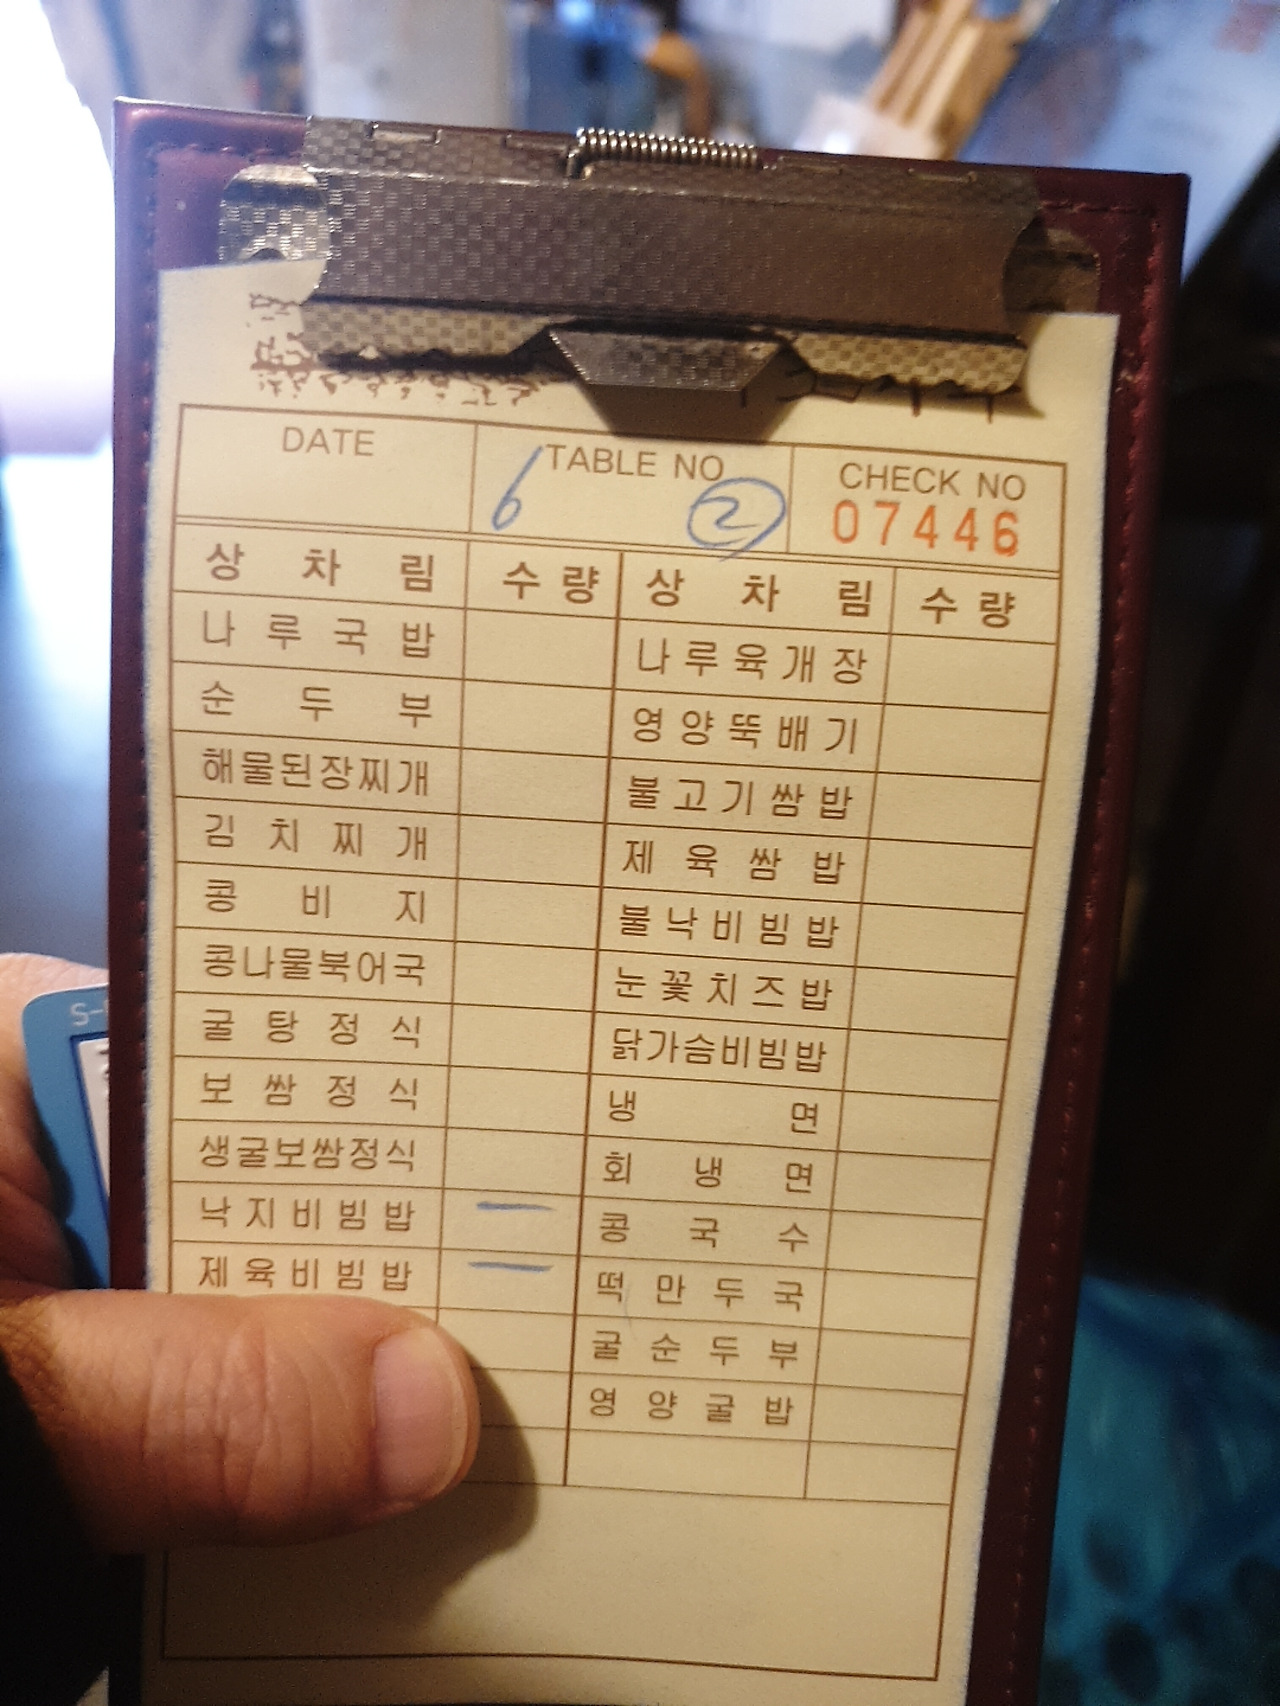 DATE TABLE NO CHECK NO
6 2 07446
상차림 수량 상차림 수량
나루국밥 나루육개장
순두부 영양뚝배기
해물된장찌개 불고기쌈밥
김치찌개 제육쌈밥
콩비지 불낙비빔밥
콩나물북어국 눈꽃치즈밥
굴탕정식 닭가슴비빔밥
보쌈정식 냉면
생굴보쌈정식 회냉면
낙지비빔밥 一 콩국수
제육비빔밥 一 떡만두국
굴순두부
영양굴밥